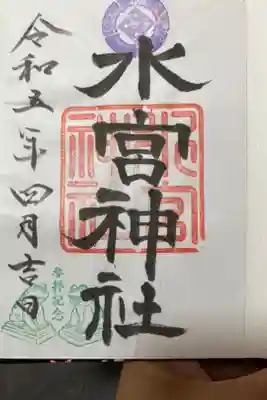 水宮神社
令和五年四月吉日
参拝記念